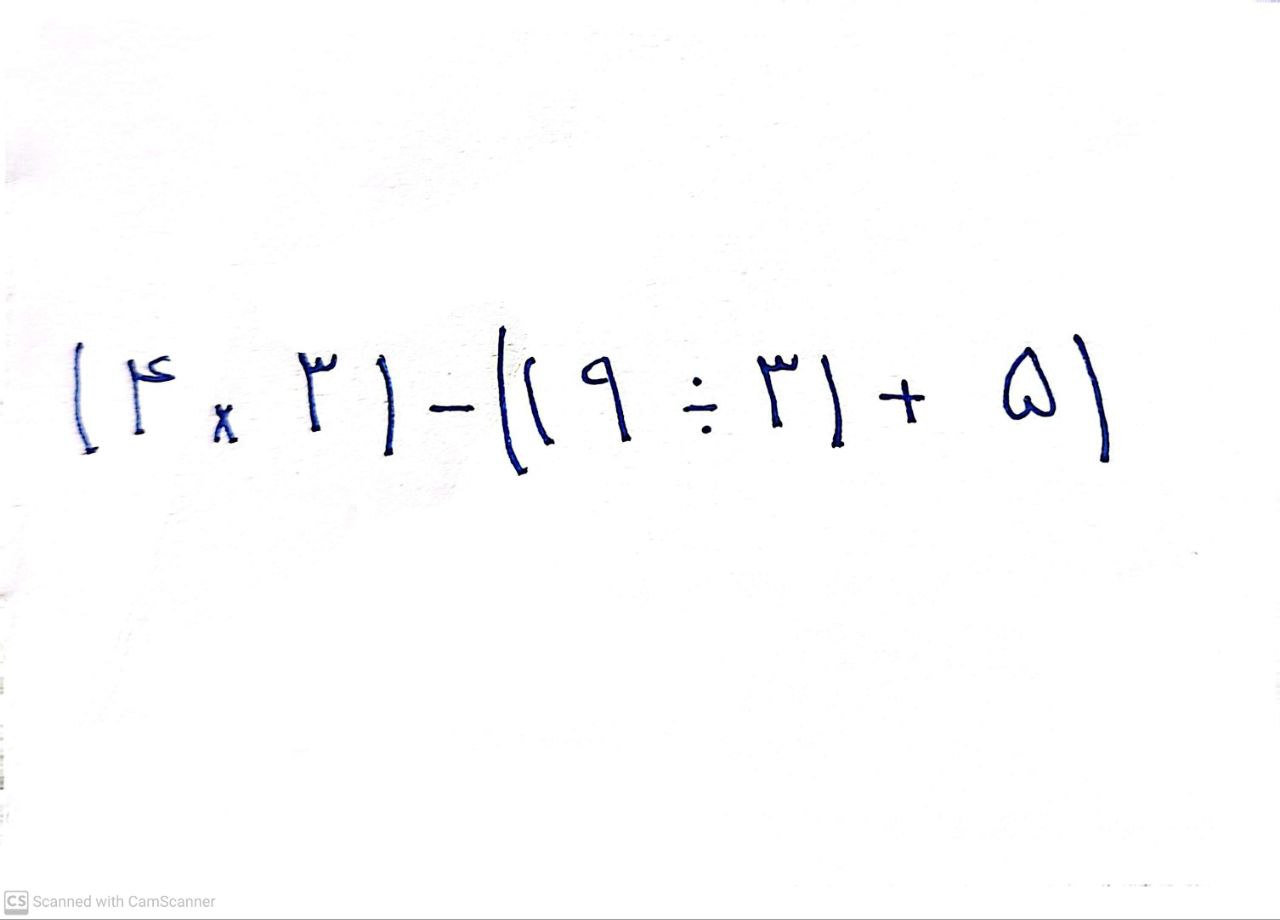 (۴ × ۳) - ((۹ ÷ ۳) + ۵)
CS Scanned with CamScanner